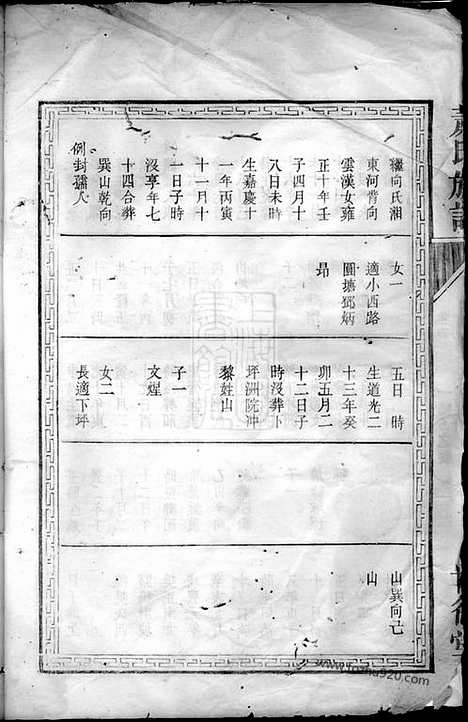 繼向氏湘
東河背向
雲漢女雍
正十年壬
子四月十
八日未時
生嘉慶十
一年丙寅
十一月十
一日子時
沒享年七
十四合葬
巽山乾向
例封孺人
女一
適小西路
圓塘鄧炳
昂
五日 時
生道光二
十三年癸
卯五月二
十二日子
時沒葬卜
坪洲院沖
黎姓山
子一
文煋
女二
長適下坪
山巽向己
山
氏族譜
www.jiapu920.com